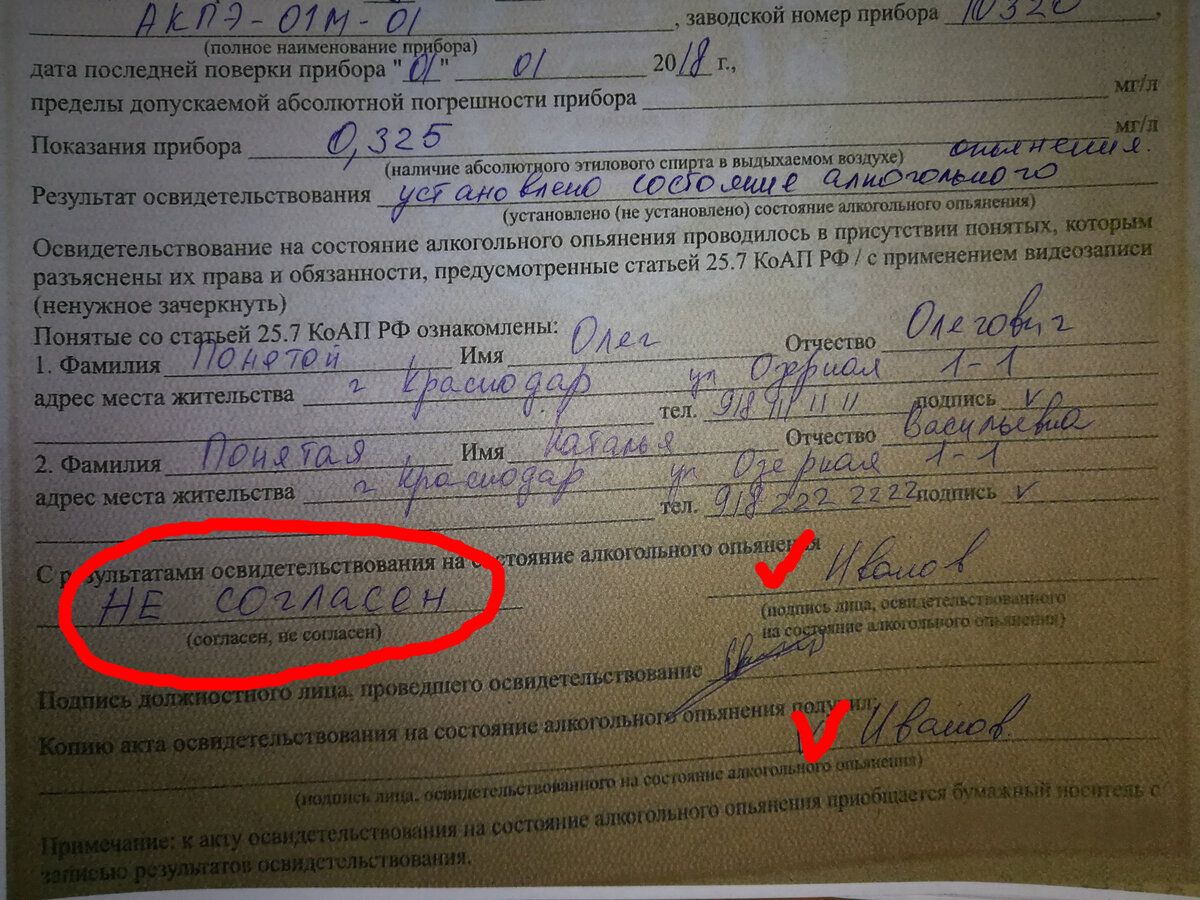 АКПЭ-01М-01, заводской номер прибора 10320,
(полное наименование прибора)
дата последней поверки прибора "01" 01 2018 г.,
пределы допускаемой абсолютной погрешности прибора мг/л
Показания прибора 0,325 мг/л
(наличие абсолютного этилового спирта в выдыхаемом воздухе) опьянения.
Результат освидетельствования установлено состояние алкогольного
(установлено (не установлено) состояние алкогольного опьянения)
Освидетельствование на состояние алкогольного опьянения проводилось в присутствии понятых, которым
разъяснены их права и обязанности, предусмотренные статьей 25.7 КоАП РФ / с применением видеозаписи
(ненужное зачеркнуть)
Понятые со статьей 25.7 КоАП РФ ознакомлены:
1. Фамилия Понятой Имя Олег Отчество Олегович
адрес места жительства г Краснодар ул Озерная 1-1
тел. 918 111 11 11 подпись v
2. Фамилия Понятая Имя Наталья Отчество Васильевна
адрес места жительства г Краснодар ул Озерная 1-1
тел. 918 222 2222 подпись v
С результатами освидетельствования на состояние алкогольного опьянения
НЕ СОГЛАСЕН Иванов
(согласен, не согласен) (подпись лица, освидетельствованного
на состояние алкогольного опьянения)
Подпись должностного лица, проведшего освидетельствование
Копию акта освидетельствования на состояние алкогольного опьянения получил:
Иванов
(подпись лица, освидетельствованного на состояние алкогольного опьянения)
Примечание: к акту освидетельствования на состояние алкогольного опьянения приобщается бумажный носитель с
записью результатов освидетельствования.